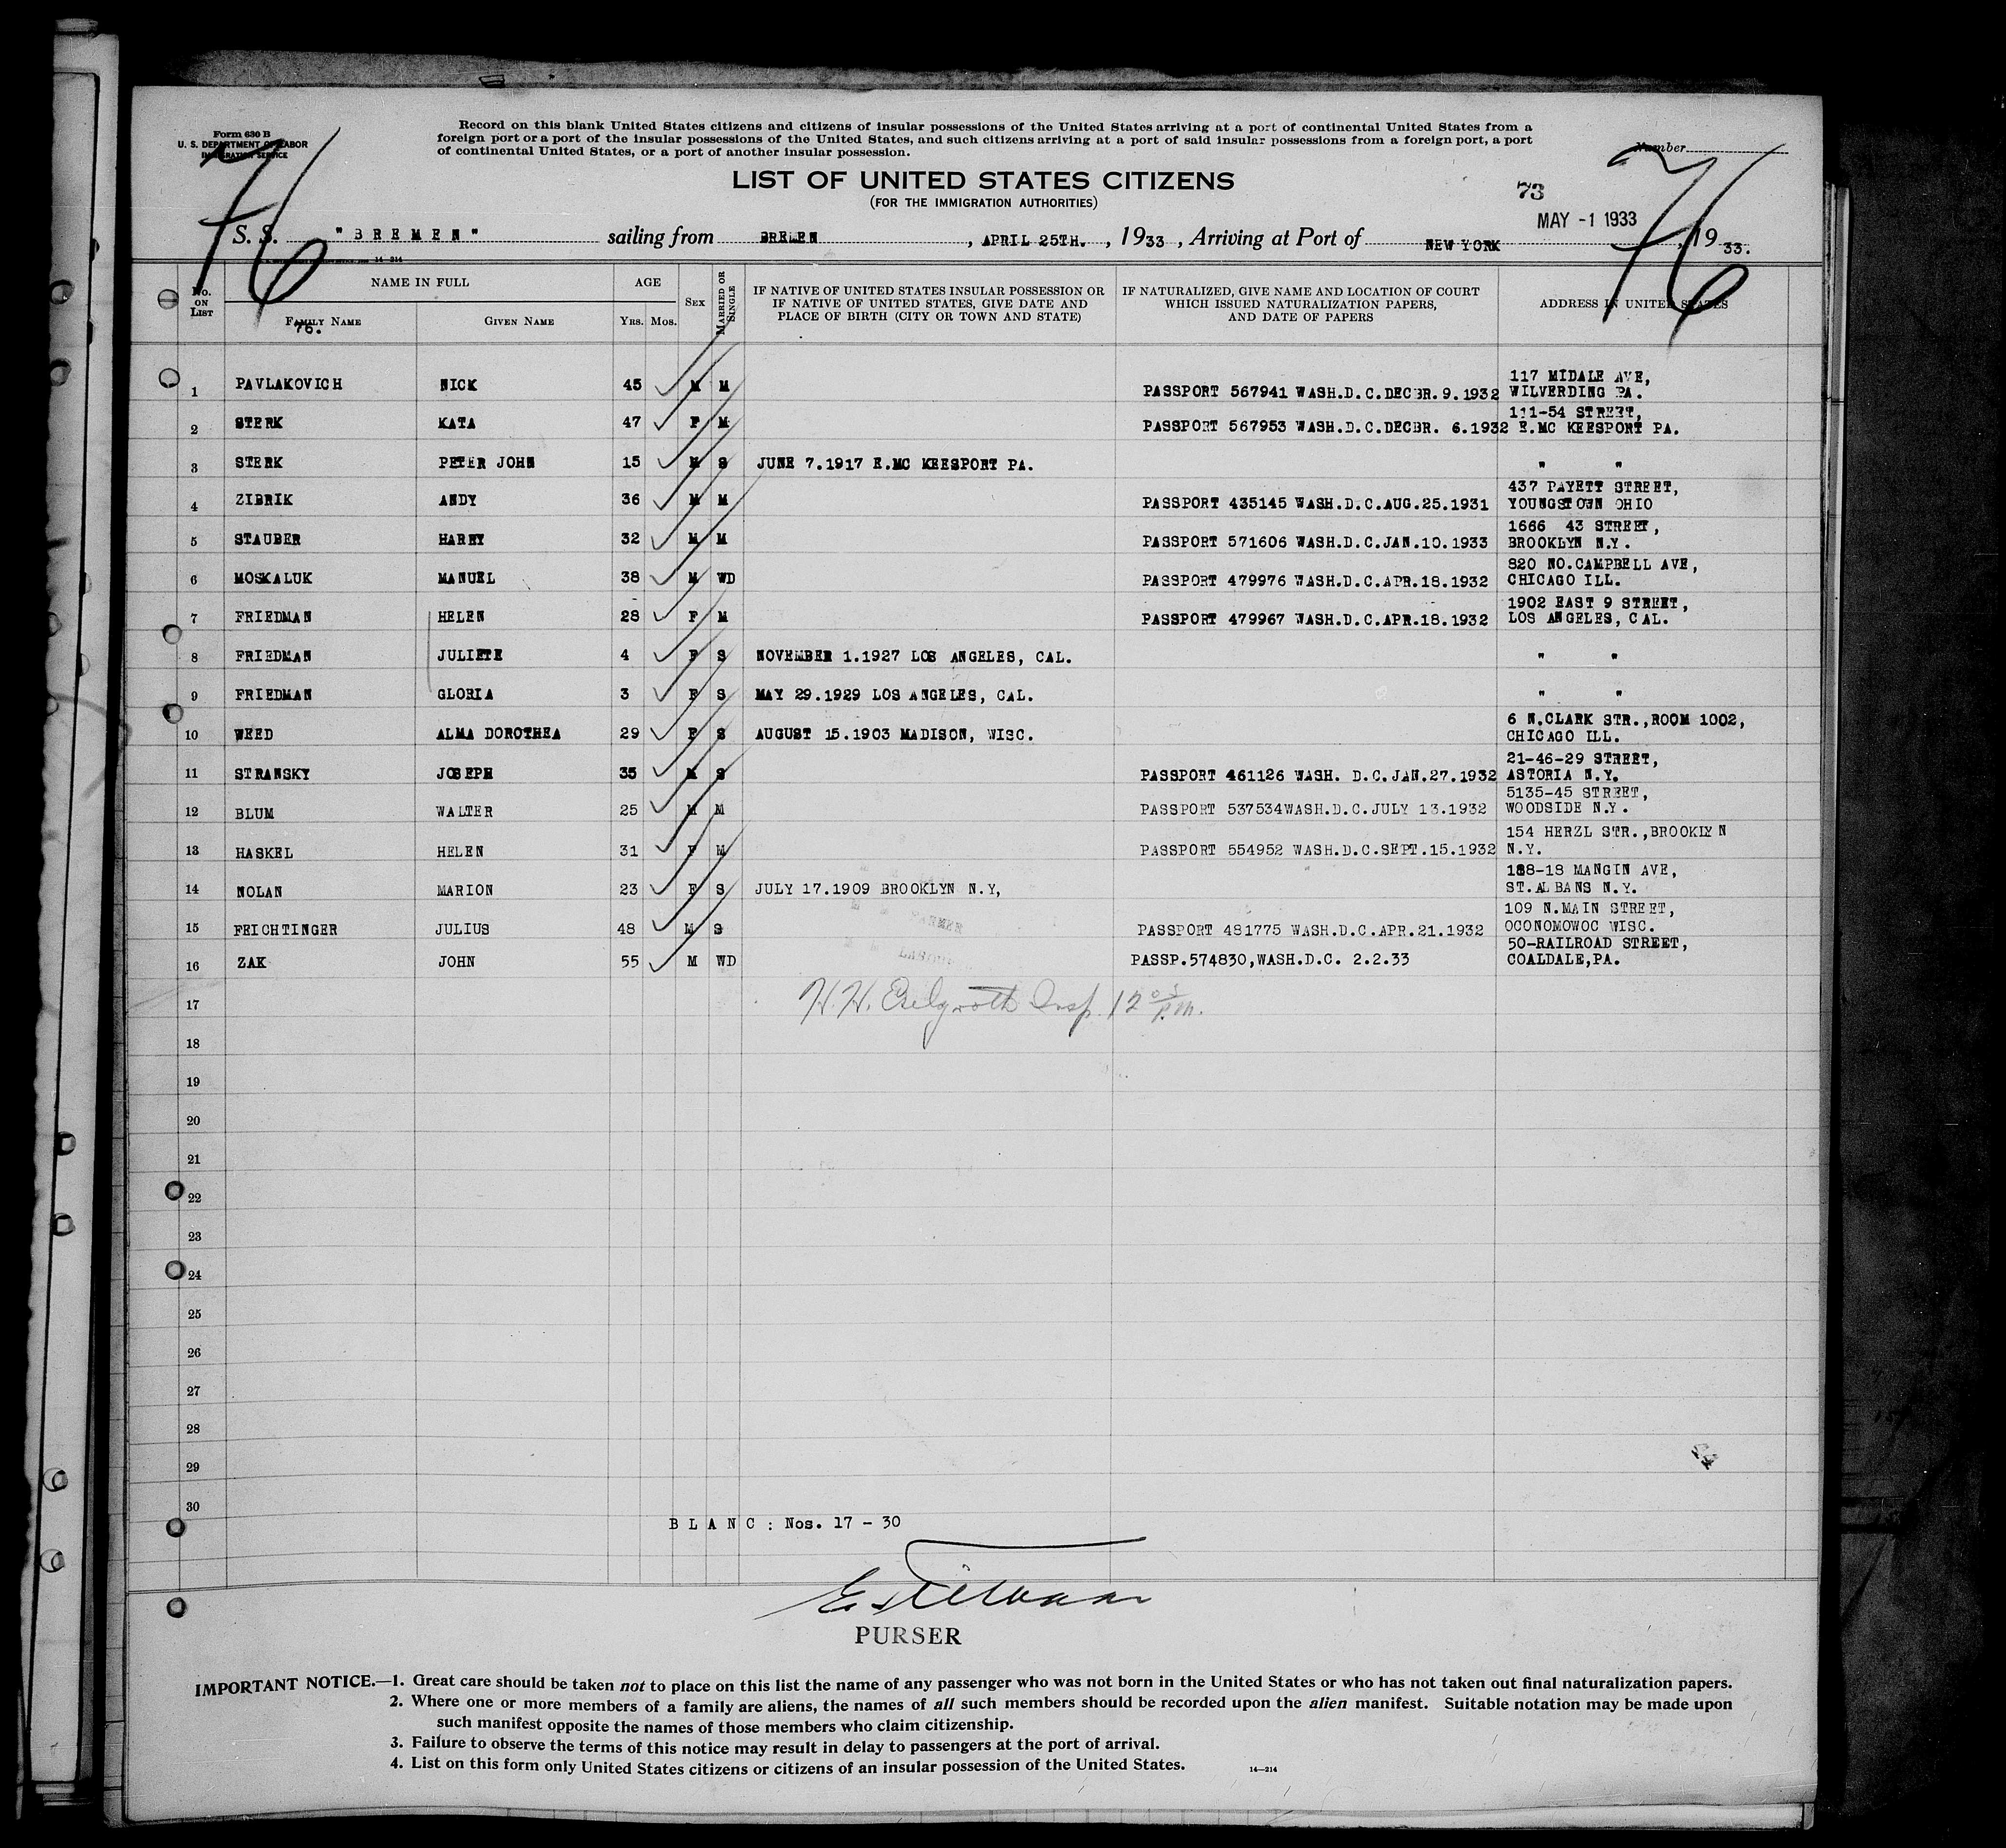 Form 630 B
U. S. DEPARTMENT OF LABOR
IMMIGRATION SERVICE
Record on this blank United States citizens and citizens of insular possessions of the United States arriving at a port of continental United States from a
foreign port or a port of the insular possessions of the United States, and such citizens arriving at a port of said insular possessions from a foreign port, a port
of continental United States, or a port of another insular possession.
Number
76
76
LIST OF UNITED STATES CITIZENS
(FOR THE IMMIGRATION AUTHORITIES)
73
MAY -1 1933
S. S. "BREMEN" sailing from BREMEN, APRIL 25TH., 1933, Arriving at Port of NEW YORK, 1933.
14-214
No. ON LIST NAME IN FULL AGE SEX MARRIED OR SINGLE IF NATIVE OF UNITED STATES INSULAR POSSESSION OR IF NATIVE OF UNITED STATES, GIVE DATE AND PLACE OF BIRTH (CITY OR TOWN AND STATE) IF NATURALIZED, GIVE NAME AND LOCATION OF COURT WHICH ISSUED NATURALIZATION PAPERS, AND DATE OF PAPERS ADDRESS IN UNITED STATES
FAMILY NAME GIVEN NAME YRS. MOS.
76.
1 PAVLAKOVICH NICK 45 M M PASSPORT 567941 WASH.D.C.DECBR.9.1932 117 MIDALE AVE, WILVERDING PA.
2 STERK KATA 47 F M PASSPORT 567953 WASH.D.C.DECBR. 6.1932 111-54 STREET, E.MC KEESPORT PA.
3 STERK PETER JOHN 15 M S JUNE 7.1917 E.MC KEESPORT PA. " "
4 ZIBRIK ANDY 36 M M PASSPORT 435145 WASH.D.C.AUG.25.1931 437 PAYETT STREET, YOUNGSTOWN OHIO
5 STAUBER HARRY 32 M M PASSPORT 571606 WASH.D.C.JAN.10.1933 1666 43 STREET, BROOKLYN N.Y.
6 MOSKALUK MANUEL 38 M WD PASSPORT 479976 WASH.D.C.APR.18.1932 820 NO.CAMPBELL AVE, CHICAGO ILL.
7 FRIEDMAN HELEN 28 F M PASSPORT 479967 WASH.D.C.APR.18.1932 1902 EAST 9 STREET, LOS ANGELES, CAL.
8 FRIEDMAN JULIETE 4 F S NOVEMBER 1.1927 LOS ANGELES, CAL. " "
9 FRIEDMAN GLORIA 3 F S MAY 29.1929 LOS ANGELES, CAL. " "
10 WEED ALMA DOROTHEA 29 F S AUGUST 15.1903 MADISON, WISC. 6 N.CLARK STR.,ROOM 1002, CHICAGO ILL.
11 STRANSKY JOSEPH 35 M S PASSPORT 461126 WASH. D.C.JAN.27.1932 21-46-29 STREET, ASTORIA N.Y.
12 BLUM WALTER 25 M M PASSPORT 537534WASH.D.C.JULY 13.1932 5135-45 STREET, WOODSIDE N.Y.
13 HASKEL HELEN 31 F M PASSPORT 554952 WASH.D.C.SEPT.15.1932 154 HERZL STR.,BROOKLYN N.Y.
14 NOLAN MARION 23 F S JULY 17.1909 BROOKLYN N.Y, 188-18 MANGIN AVE, ST.ALBANS N.Y.
15 FEICHTINGER JULIUS 48 M S PASSPORT 481775 WASH.D.C.APR.21.1932 109 N.MAIN STREET, OCONOMOWOC WISC.
16 ZAK JOHN 55 M WD PASSP.574830,WASH.D.C. 2.2.33 50-RAILROAD STREET, COALDALE,PA.
17 H.H. Insp. 12 05 P.M.
18
19
20
21
22
23
24
25
26
27
28
29
30
BLANC: Nos. 17 - 30
PURSER
IMPORTANT NOTICE.—1. Great care should be taken not to place on this list the name of any passenger who was not born in the United States or who has not taken out final naturalization papers.
2. Where one or more members of a family are aliens, the names of all such members should be recorded upon the alien manifest. Suitable notation may be made upon
such manifest opposite the names of those members who claim citizenship.
3. Failure to observe the terms of this notice may result in delay to passengers at the port of arrival.
4. List on this form only United States citizens or citizens of an insular possession of the United States.
14—214